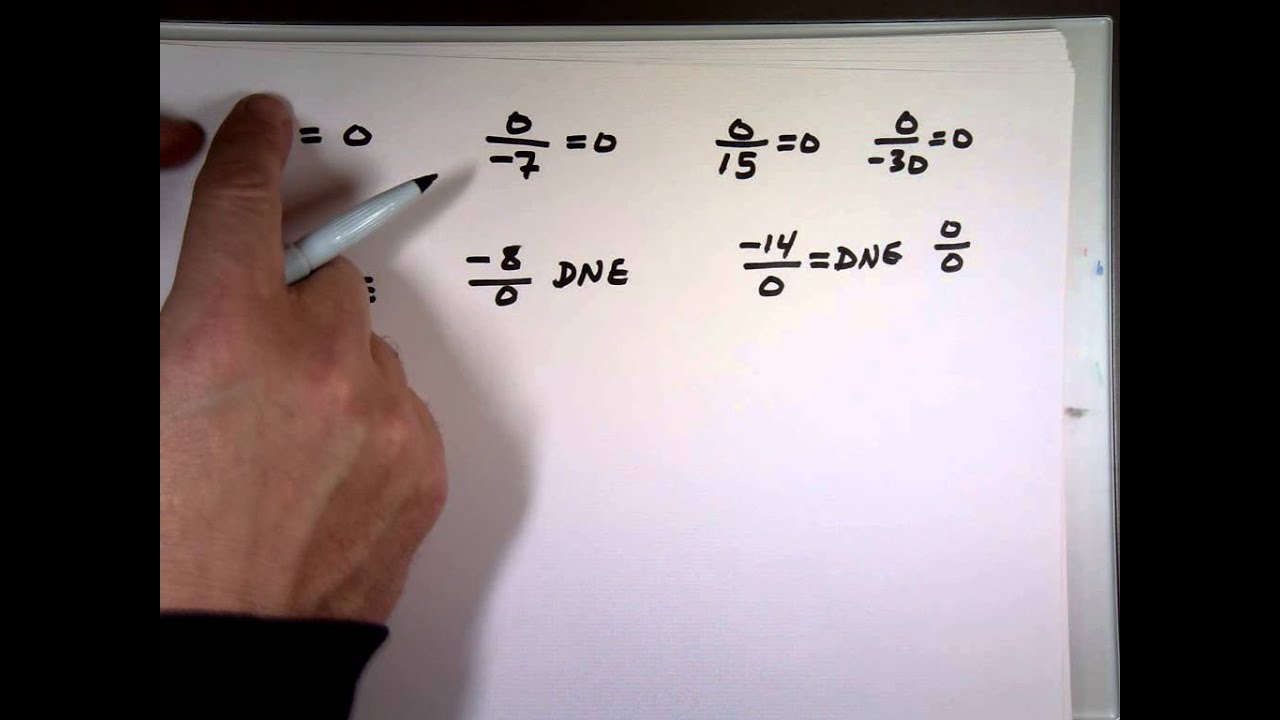 = 0 0/-7 = 0 0/15 = 0 0/-30 = 0
-8/0 DNE -14/0 = DNE 0/0